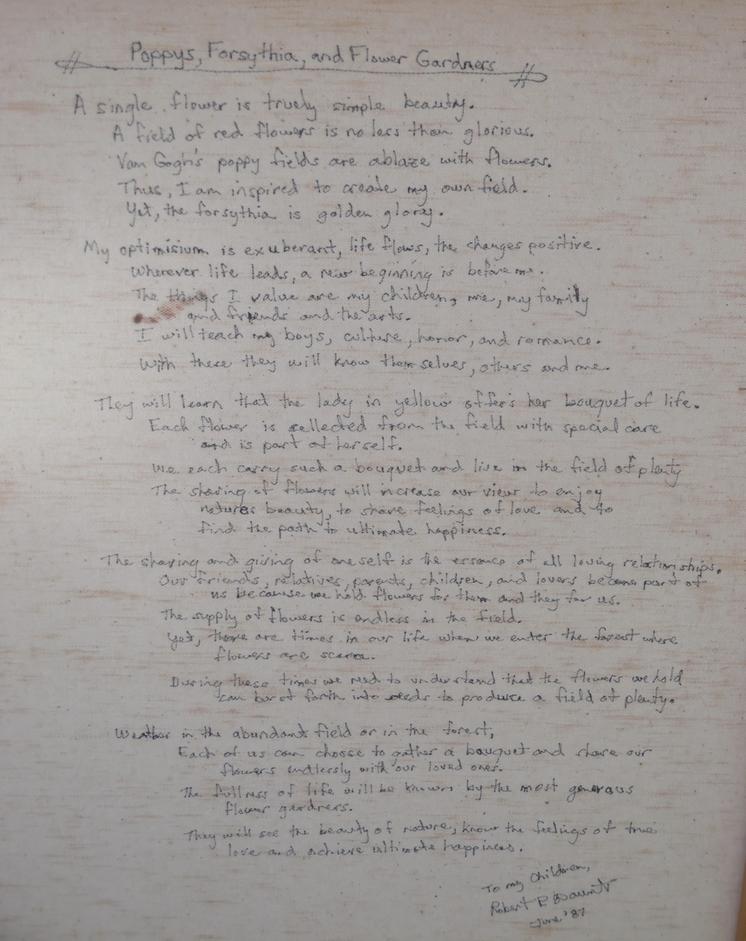 Poppys, Forsythia, and Flower Gardners
A single flower is truely simple beauty.
A field of red flowers is no less than glorious.
Van Gogh's poppy fields are ablaze with flowers.
Thus, I am inspired to create my own field.
Yet, the forsythia is golden glory.
My optimisium is exuberant, life flows, the changes positive.
Wherever life leads, a new beginning is before me.
The things I value are my children, me, my family
and friends and the arts.
I will teach my boys, culture, honor, and romance.
With these they will know themselves, others and me.
They will learn that the lady in yellow offer's her bouquet of life.
Each flower is sellected from the field with special care
and is part of herself.
We each carry such a bouquet and live in the field of plenty
The sharing of flowers will increase our view to enjoy
natures beauty, to share feelings of love and to
find the path to ultimate happiness.
The sharing and giving of oneself is the essence of all loving relationships.
Our friends, relatives, parents, children, and lovers become part of
us because we hold flowers for them and they for us.
The supply of flowers is endless in the field.
Yet, there are times in our life when we enter the forest where
flowers are scarce.
During these times we need to understand that the flowers we hold
can burst forth into seeds to produce a field of plenty.
Weather in the abundant field or in the forest,
Each of us can choose to gather a bouquet and share our
flowers endlessly with our loved ones.
The fullness of life will be known by the most generous
flower gardners.
They will see the beauty of nature, know the feelings of true
love and achieve ultimate happiness.
To my Children,
Robert P.
June '87